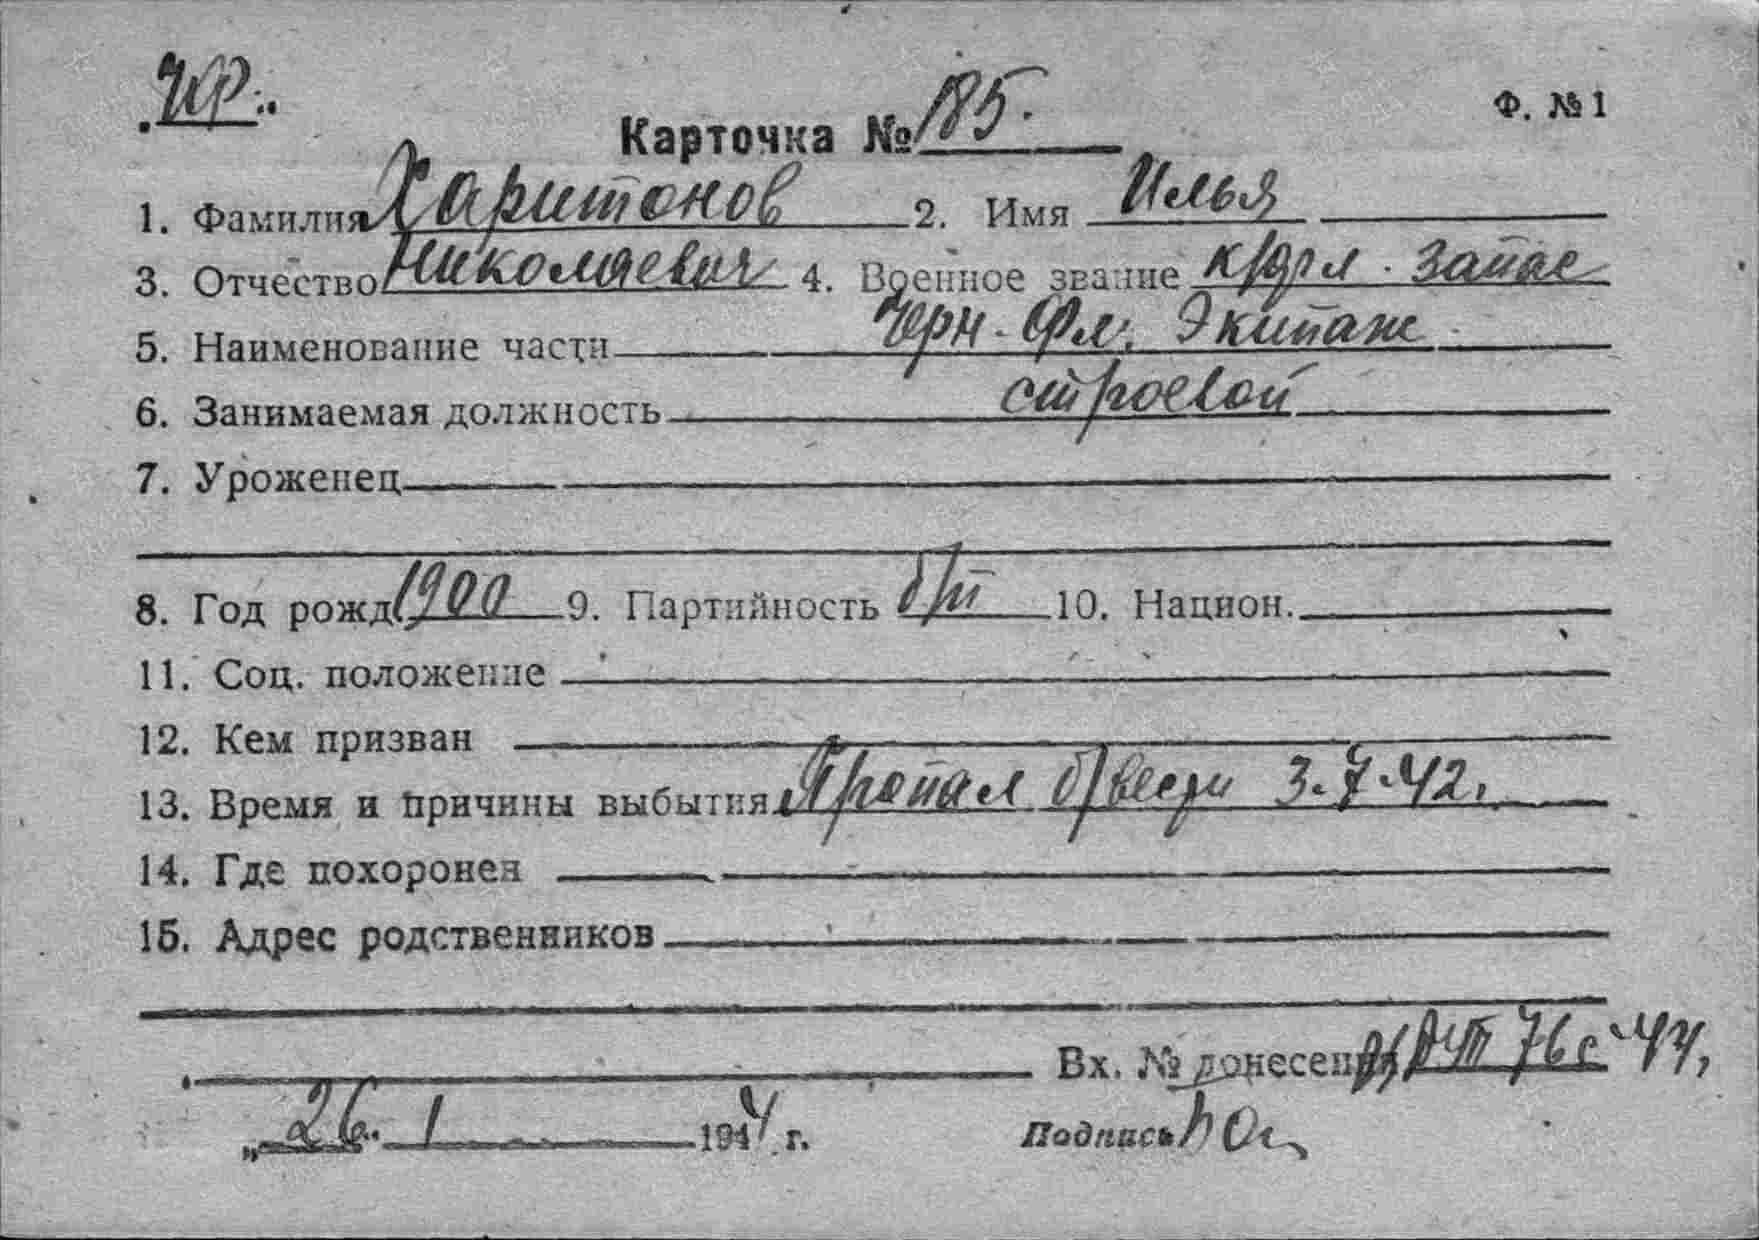 Ф. № 1
Карточка № 185.
1. Фамилия Харитонов 2. Имя Илья
3. Отчество Николаевич 4. Военное звание к/фл. запас
5. Наименование части Черн. Фл. Экипаж
6. Занимаемая должность строевой
7. Уроженец
8. Год рожд. 1900 9. Партийность б/п 10. Национ.
11. Соц. положение
12. Кем призван
13. Время и причины выбытия Пропал б/вести 3.7.42.
14. Где похоронен
15. Адрес родственников
Вх. № донесения 76с 44,
„26. 1 1944 г. Подпись